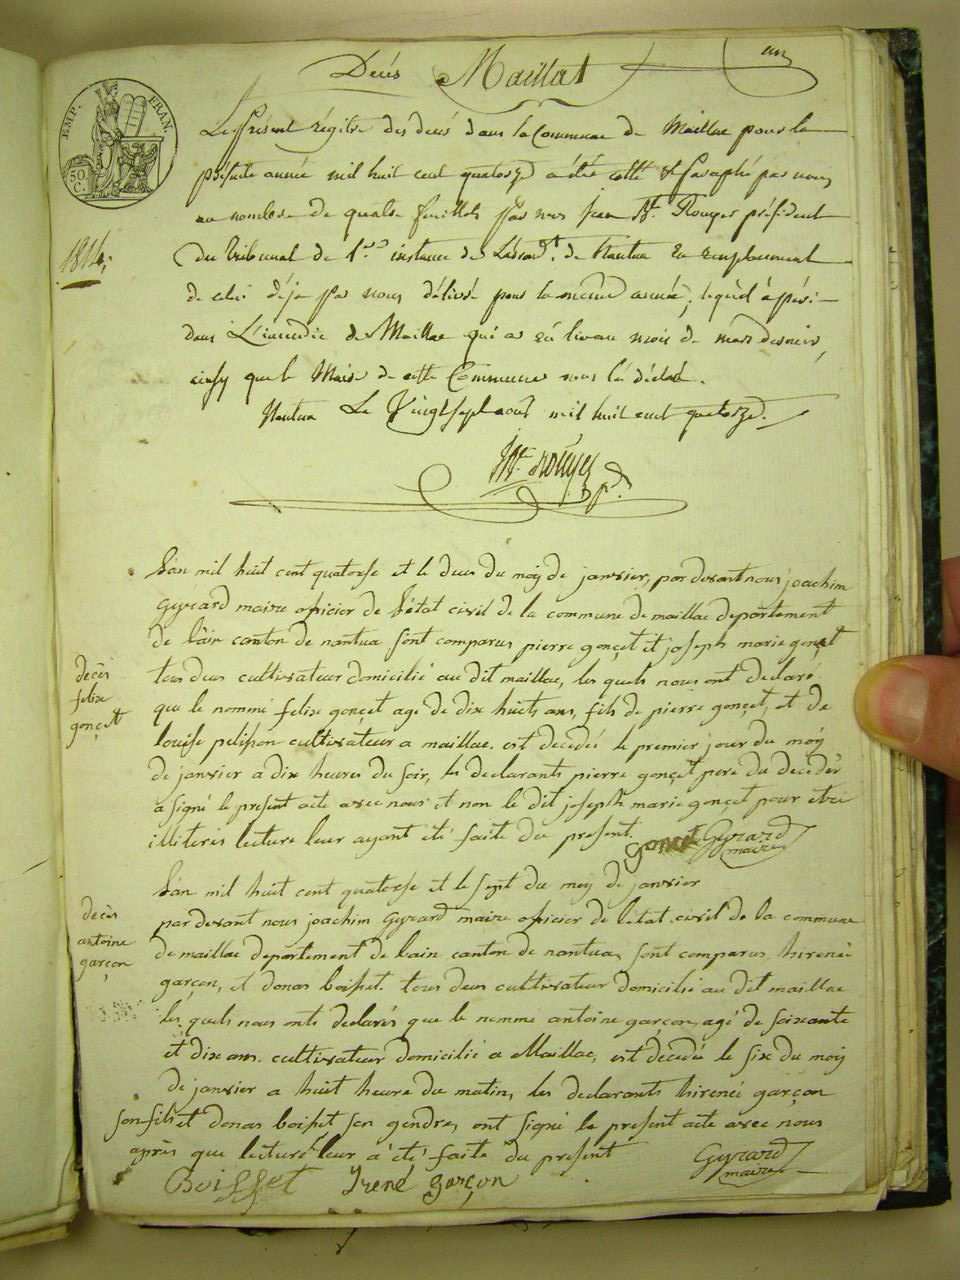 Decés Maillat an
EMP. FRAN.
50 C.
Le Présent régistre des decés dans la Commune de Maillac pour la
présente année mil huit cent quatorze a été cotté & paraphé par nous
au nombre de quatre feuillets par nous jean Bte Rouyer président
1814.
Du tribunal de 1ere instance de L'arrondt. de Nantua en remplacement
de celui déja par nous délivré pour la meme année, lequel a péri
dans L'incendie de Maillac qui a eu lieu au mois de mars dernier,
ainsy que le Maire de cette Commune nous l'a déclaré.
Nantua Le Vingt sept aout mil huit cent quatorze.
Bte rouyer pt.
L'an mil huit cent quatorse et le deus du moy de janvier, par devant nous joachim
Gyrard maire oficier de l'état civil de la commune de maillac departement
de l'ain canton de nantua sont comparus pierre gonçet et joseph marie gonçet
decès
felix
gonçet
tous deus cultivateur domicilié au dit maillac, les quels nous ont declaré
que le nommé felix gonçet age de dix huits ans, fils de pierre gonçet, et de
louise pelisson cultivateur a maillac. est decedés le premier jour du moy
de janvier a dix heures du soir, les declarants pierre gonçet pere du decédér
a signé le present acte avec nous et non le dit joseph marie gonçet pour etre
illiterés lecture leur ayant été faite du present.
gonçet Gyrard
maire
L'an mil huit cent quatorse et le sept du moy de janvier
decès
antoine
garçon
par devant nous joachim Gyrard maire oficier de l'etat civil de la commune
de maillac departement de l'ain canton de nantua, sont comparus hirené
garçon, et donas boisset. tous deus cultivateur domicilié au dit maillac
les quels nous onts declarés que le nommé antoine garçon, agé de soixante
et dix ans. cultivateur domicilié a Maillac, est décedé le six du moy
de janvier a huit heure du matin, les declarants hirené garçon
son fils et donas boisset son gendre, ont signé le present acte avec nous
après que lecture leur a été faite du present
Gyrard
maire
Boisset Irené garçon